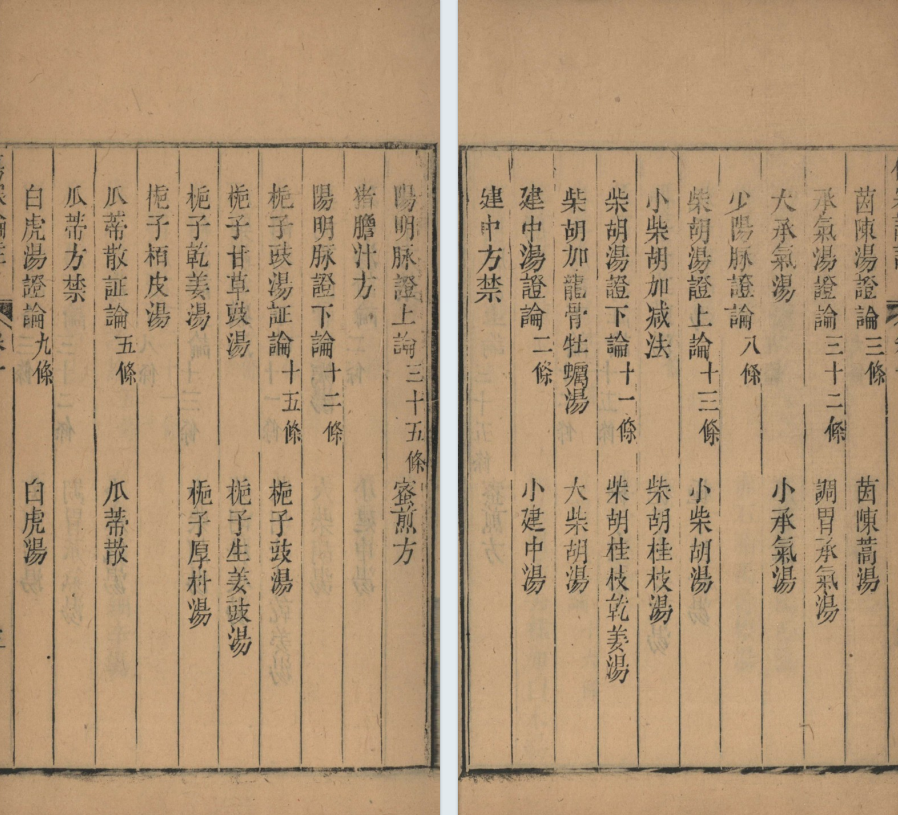 陽明脉證上論三十五條 蜜煎方
猪膽汁方
陽明脉證下論十二條
梔子豉湯証論十五條 梔子豉湯
梔子甘草豉湯 梔子生姜豉湯
梔子乾姜湯 梔子厚朴湯
梔子栢皮湯
瓜蒂散証論五條 瓜蒂散
瓜蒂方禁
白虎湯證論九條 白虎湯
茵陳湯證論三條 茵陳蒿湯
承氣湯證論三十二條 調胃承氣湯
大承氣湯 小承氣湯
少陽脉證論八條
柴胡湯證上論十三條 小柴胡湯
小柴胡加减法 柴胡桂枝湯
柴胡湯證下論十一條 柴胡桂枝乾姜湯
柴胡加龍骨牡蠣湯 大柴胡湯
建中湯證論二條 小建中湯
建中方禁